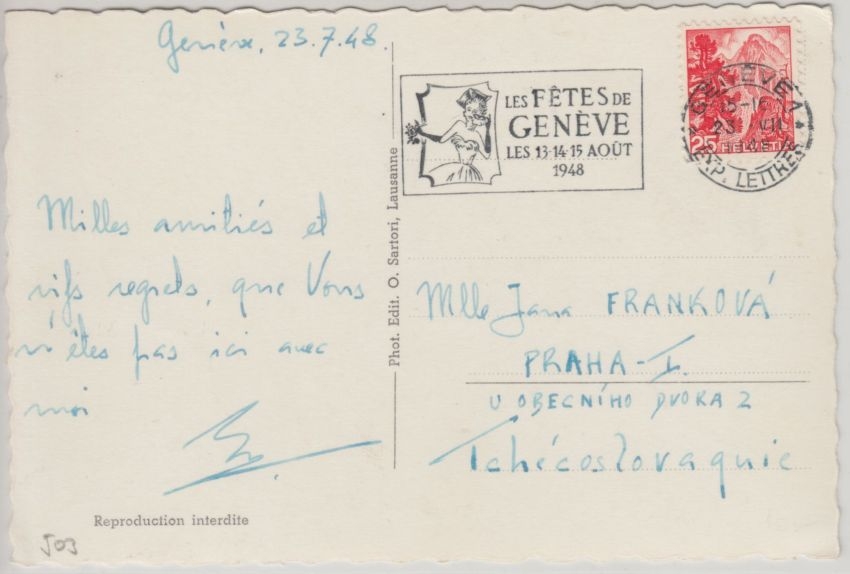 Genève, 23.7.48.
LES FÊTES DE
GENÈVE
LES 13-14-15 AOÛT
1948
GENÈVE 1
15-16
23 VII
EXP. LETTRES
25 HELVETIA
Milles amitiés et
vifs regrets, que Vous
n'êtes pas ici avec
moi
Phot. Edit. O. Sartori, Lausanne
Mlle Jana FRANKOVÁ
PRAHA-I.
U OBECNÍHO DVORA 2
Tchécoslovaquie
Reproduction interdite
503